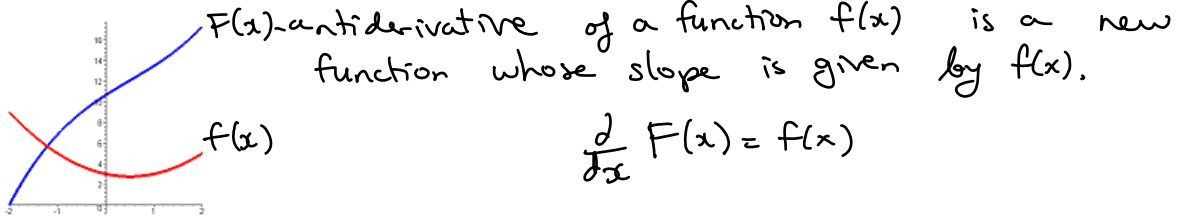 F(x)-antiderivative of a function f(x) is a new
function whose slope is given by f(x).
f(x)
d/dx F(x) = f(x)
16
14
12
10
8
6
4
2
0
-2 -1 1 2